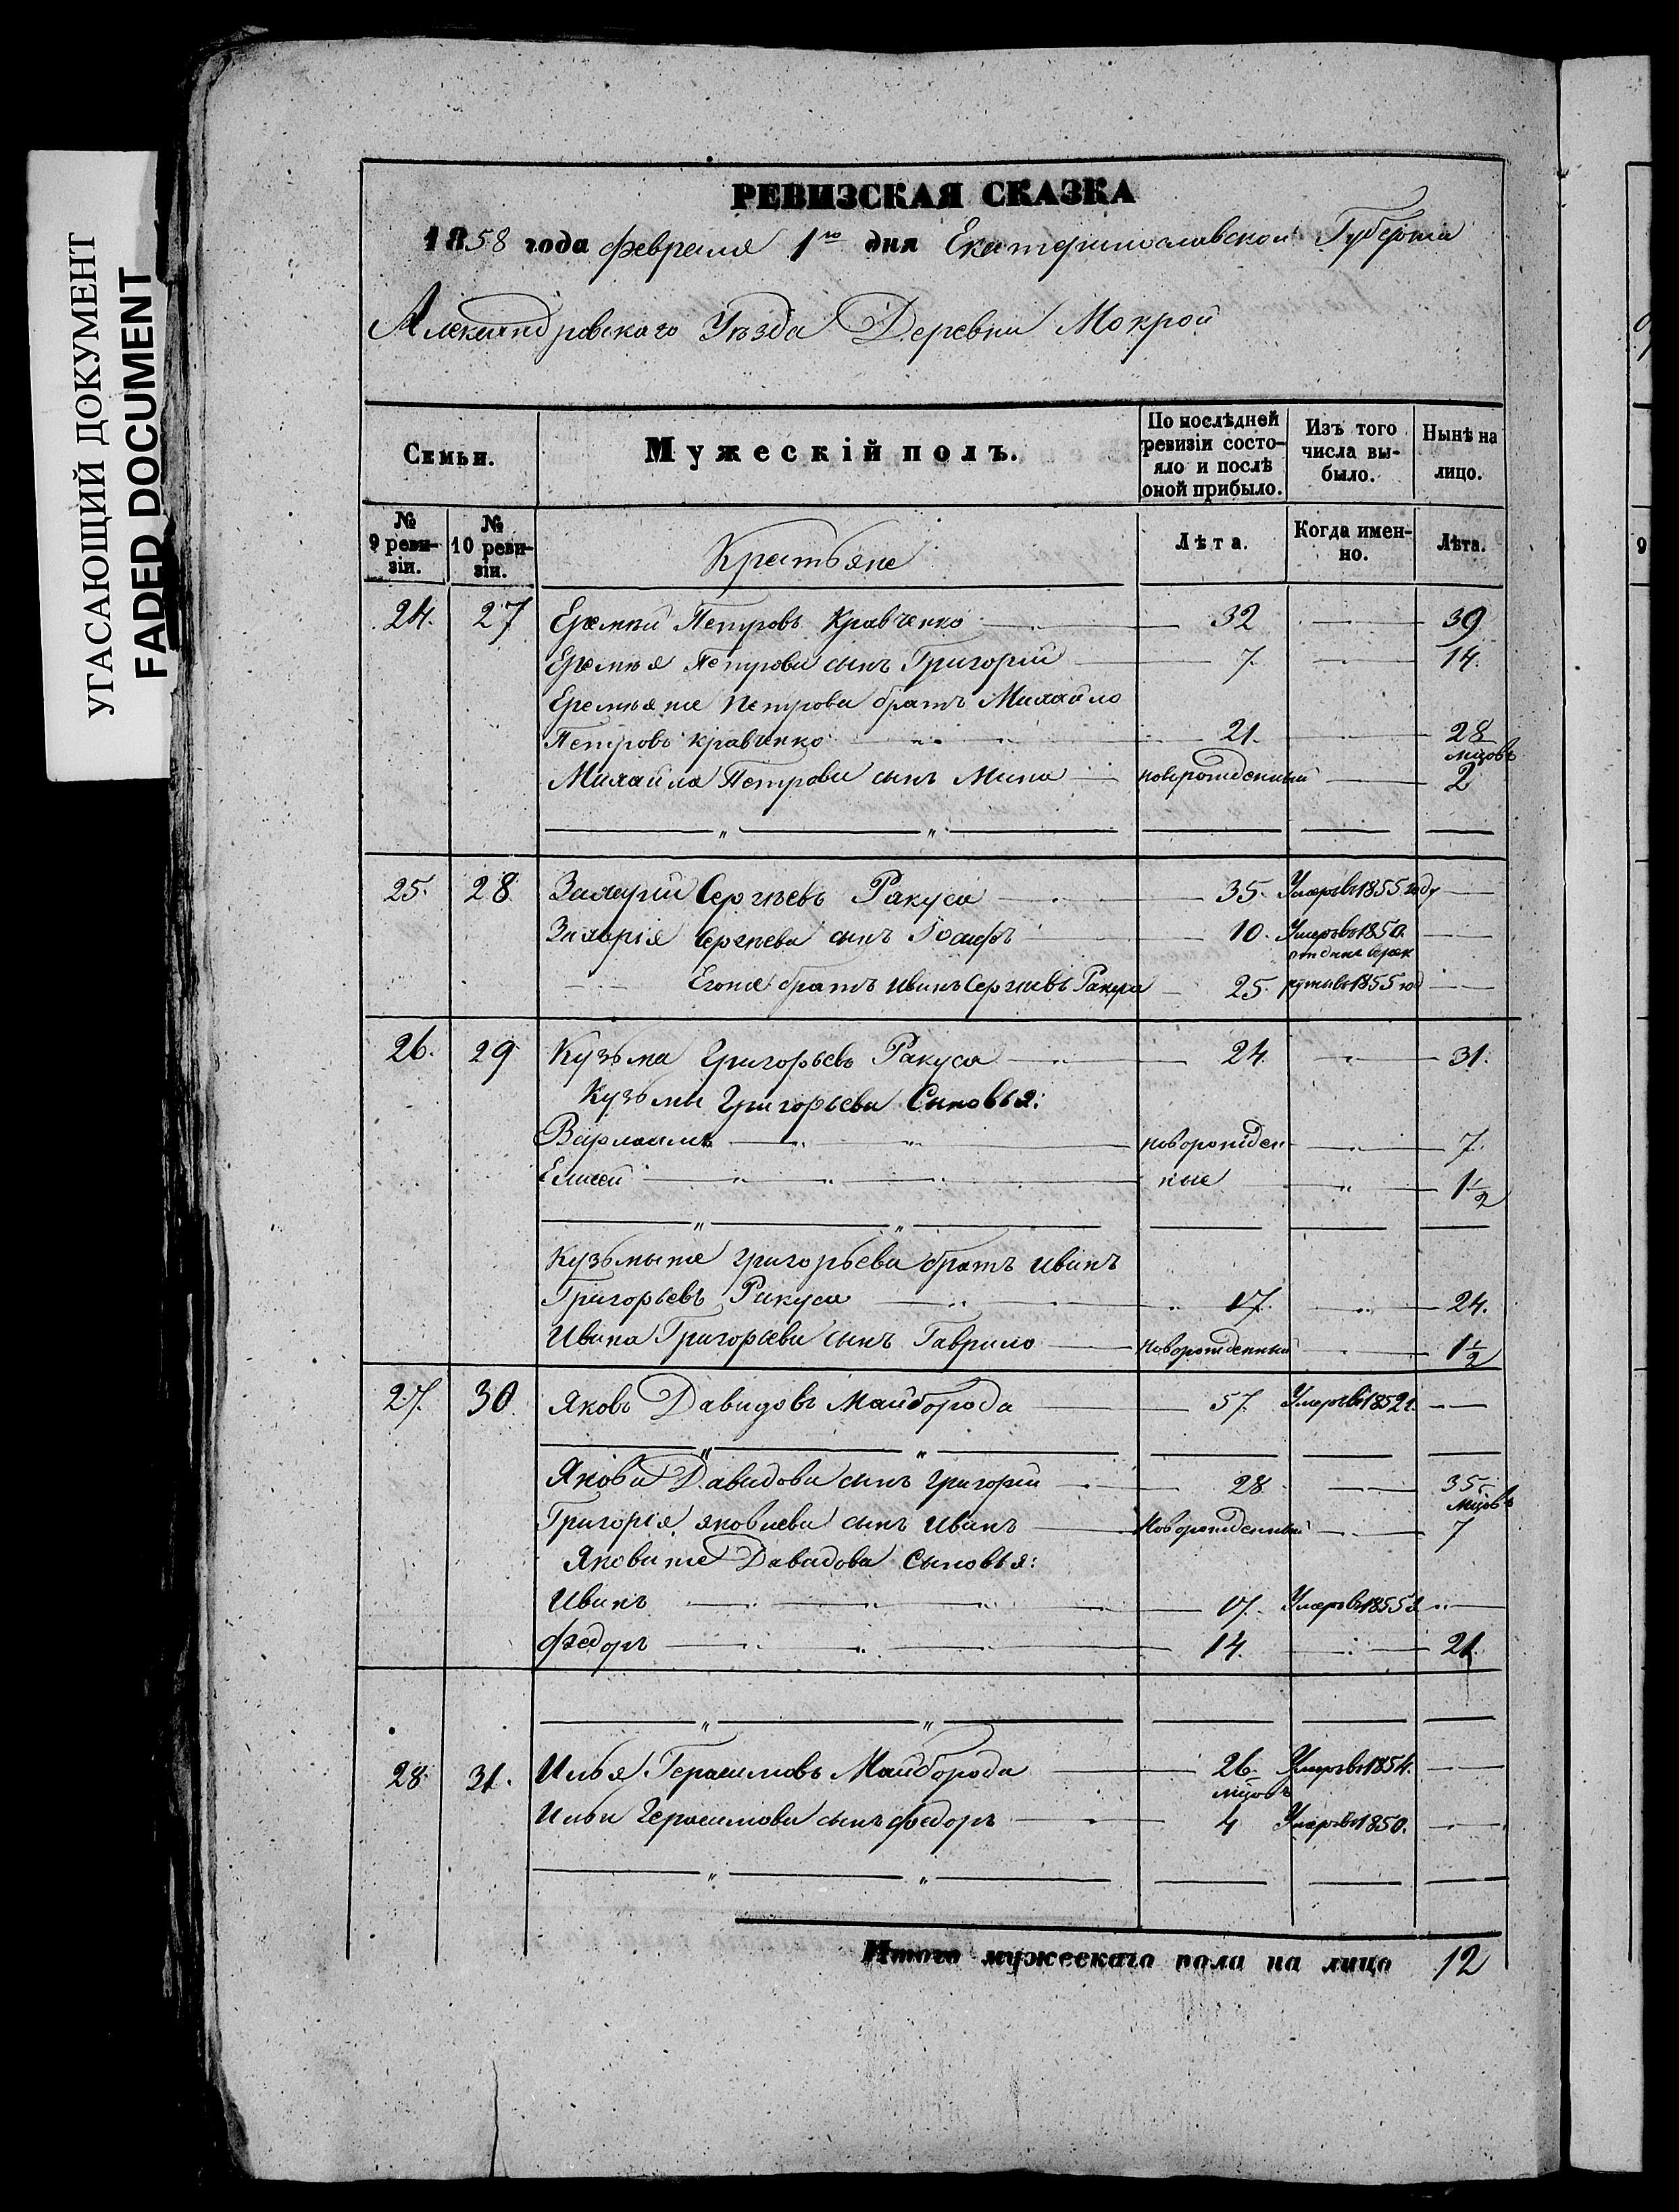 УГАСАЮЩИЙ ДОКУМЕНТ
FADED DOCUMENT
РЕВИЗСКАЯ СКАЗКА
1858 года февраля 1го дня Екатеринославской Губернии
Александровскаго Уѣзда Деревни Мокрой
Семьи. Мужескій полъ. По послѣдней ревизіи состо-яло и послѣ оной прибыло. Изъ того числа вы-было. Нынѣ на лицо.
№ 9 реви-зіи. № 10 реви-зіи. Крестьяне Лѣта. Когда имен-но. Лѣта.
24. 27 Еремѣй Петровъ Кравченко 32 39
Еремѣя Петрова сынъ Григорій 7. 14.
Еремѣя же Петрова братъ Михайло
Петровъ Кравченко 21. 28
Михайла Петрова сынъ Мина новорожденный мцовъ 2
25. 28 Захарій Сергѣевъ Ракуса 35. Умеръ въ 1855 году
Захарія Сергѣева сынъ Іосифъ 10. Умеръ въ 1850.
Его же братъ Иванъ Сергѣевъ Ракуса 25. отданъ въ рек руты въ 1855 год
26. 29 Кузьма Григорьевъ Ракуса 24. 31.
Кузьмы Григорьева Сыновья:
Варлаамъ новорожден 7.
Елисей ные 1 1/2
Кузьмы же Григорьева братъ Иванъ
Григорьевъ Ракуса 17. 24.
Ивана Григорьева сынъ Гаврило новорожденный 1 1/2
27. 30 Яковъ Давидовъ Майборода 57. Умеръ въ 1852 г.
Якова Давидова сынъ Григорій 28 35.
Григорія Яковлева сынъ Иванъ Новорожденный мцовъ 7
Якова же Давидова Сыновья:
Иванъ 17. Умеръ въ 1855 г.
Федоръ 14. 21.
28. 31. Илья Герасимовъ Майборода 26. Умеръ въ 1854.
Ильи Герасимова сынъ Федоръ мцовъ 4 Умеръ въ 1850.
Итого мужескаго пола на лицо 12
9